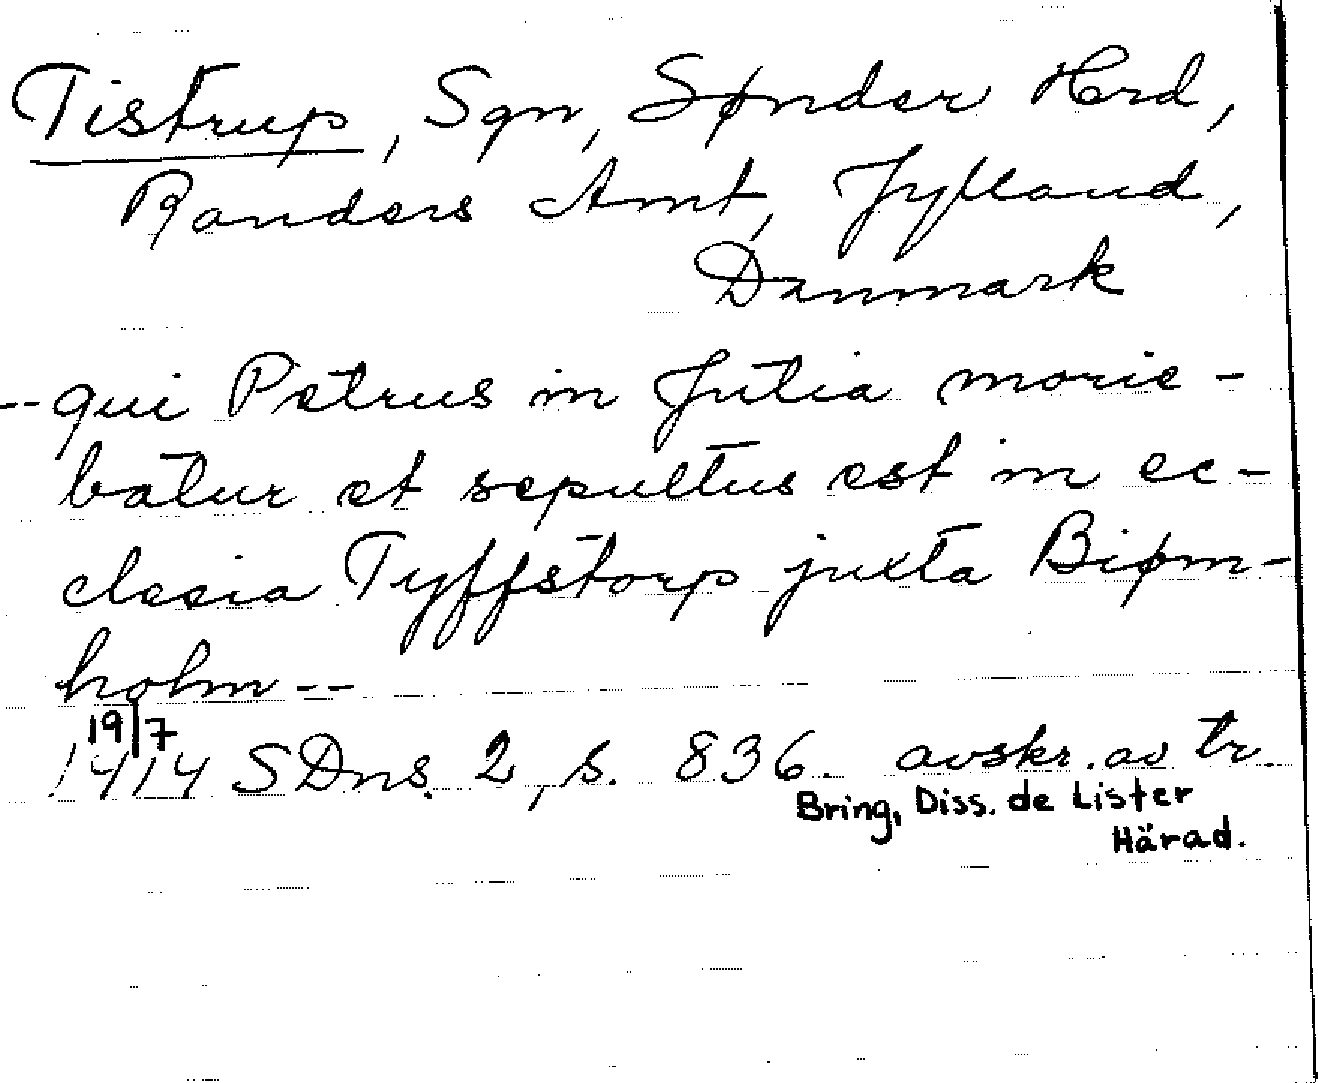 Tistrup, Sgn, Sønder Hrd,
Randers Amt, Jylland,
Danmark
-- qui Petrus in Jutia morie-
batur et sepultus est in ec-
clesia Tyffstorp juxta Biørn-
holm --
19/7
1414 SDns 2, s. 836. avskr. av tr.
Bring, Diss. de Lister
Härad.